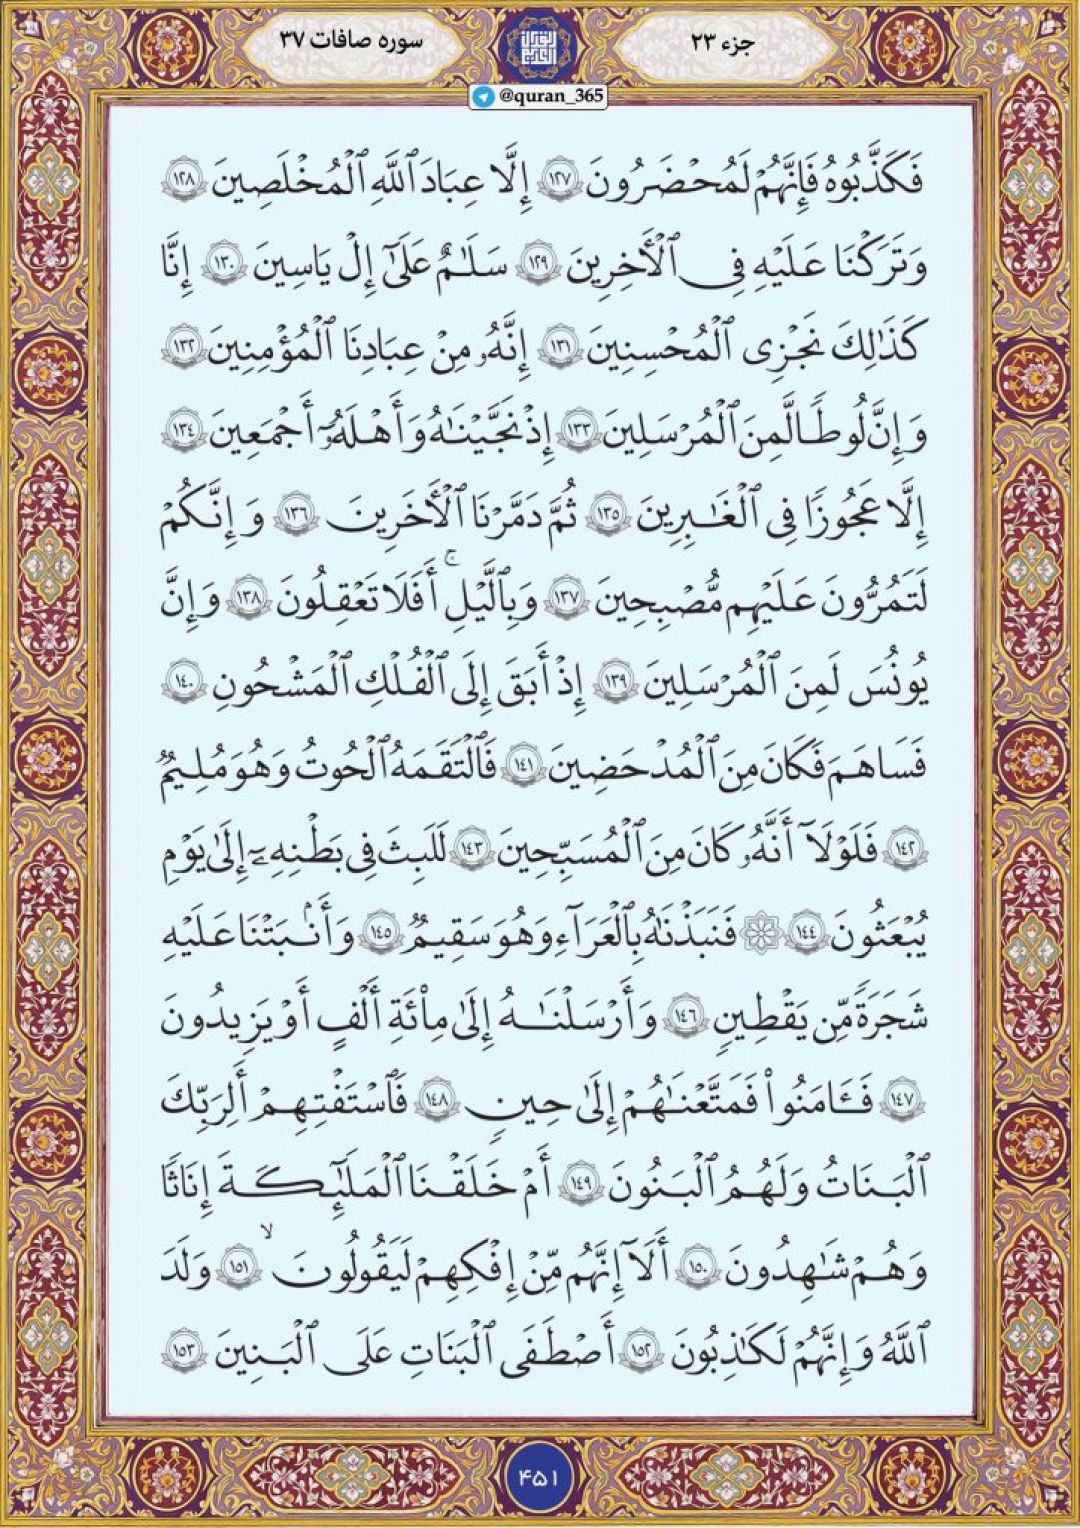 جزء ۲۳
سوره صافات ۳۷
@quran_365
فَكَذَّبُوهُ فَإِنَّهُمْ لَمُحْضَرُونَ ١٢٧ إِلَّا عِبَادَ ٱللَّهِ ٱلْمُخْلَصِينَ ١٢٨
وَتَرَكْنَا عَلَيْهِ فِى ٱلْأَخِرِينَ ١٢٩ سَلَـٰمٌ عَلَىٰٓ إِلْ يَاسِينَ ١٣٠ إِنَّا
كَذَٰلِكَ نَجْزِى ٱلْمُحْسِنِينَ ١٣١ إِنَّهُۥ مِنْ عِبَادِنَا ٱلْمُؤْمِنِينَ ١٣٢
وَإِنَّ لُوطًا لَّمِنَ ٱلْمُرْسَلِينَ ١٣٣ إِذْ نَجَّيْنَـٰهُ وَأَهْلَهُۥٓ أَجْمَعِينَ ١٣٤
إِلَّا عَجُوزًا فِى ٱلْغَـٰبِرِينَ ١٣٥ ثُمَّ دَمَّرْنَا ٱلْأَخَرِينَ ١٣٦ وَإِنَّكُمْ
لَتَمُرُّونَ عَلَيْهِم مُّصْبِحِينَ ١٣٧ وَبِٱلَّيْلِ ۚ أَفَلَا تَعْقِلُونَ ١٣٨ وَإِنَّ
يُونُسَ لَمِنَ ٱلْمُرْسَلِينَ ١٣٩ إِذْ أَبَقَ إِلَى ٱلْفُلْكِ ٱلْمَشْحُونِ ١٤٠
فَسَاهَمَ فَكَانَ مِنَ ٱلْمُدْحَضِينَ ١٤١ فَٱلْتَقَمَهُ ٱلْحُوتُ وَهُوَ مُلِيمٌ
١٤٢ فَلَوْلَآ أَنَّهُۥ كَانَ مِنَ ٱلْمُسَبِّحِينَ ١٤٣ لَلَبِثَ فِى بَطْنِهِۦٓ إِلَىٰ يَوْمِ
يُبْعَثُونَ ١٤٤ ۞ فَنَبَذْنَـٰهُ بِٱلْعَرَآءِ وَهُوَ سَقِيمٌ ١٤٥ وَأَنۢبَتْنَا عَلَيْهِ
شَجَرَةً مِّن يَقْطِينٍ ١٤٦ وَأَرْسَلْنَـٰهُ إِلَىٰ مِا۟ئَةِ أَلْفٍ أَوْ يَزِيدُونَ
١٤٧ فَـَٔامَنُوا۟ فَمَتَّعْنَـٰهُمْ إِلَىٰ حِينٍ ١٤٨ فَٱسْتَفْتِهِمْ أَلِرَبِّكَ
ٱلْبَنَاتُ وَلَهُمُ ٱلْبَنُونَ ١٤٩ أَمْ خَلَقْنَا ٱلْمَلَـٰٓئِكَةَ إِنَـاثًا
وَهُمْ شَـٰهِدُونَ ١٥٠ أَلَآ إِنَّهُم مِّنْ إِفْكِهِمْ لَيَقُولُونَ ۙ ١٥١ وَلَدَ
ٱللَّهُ وَإِنَّهُمْ لَكَـٰذِبُونَ ١٥٢ أَصْطَفَى ٱلْبَنَاتِ عَلَى ٱلْبَنِينَ ١٥٣
۴۵۱